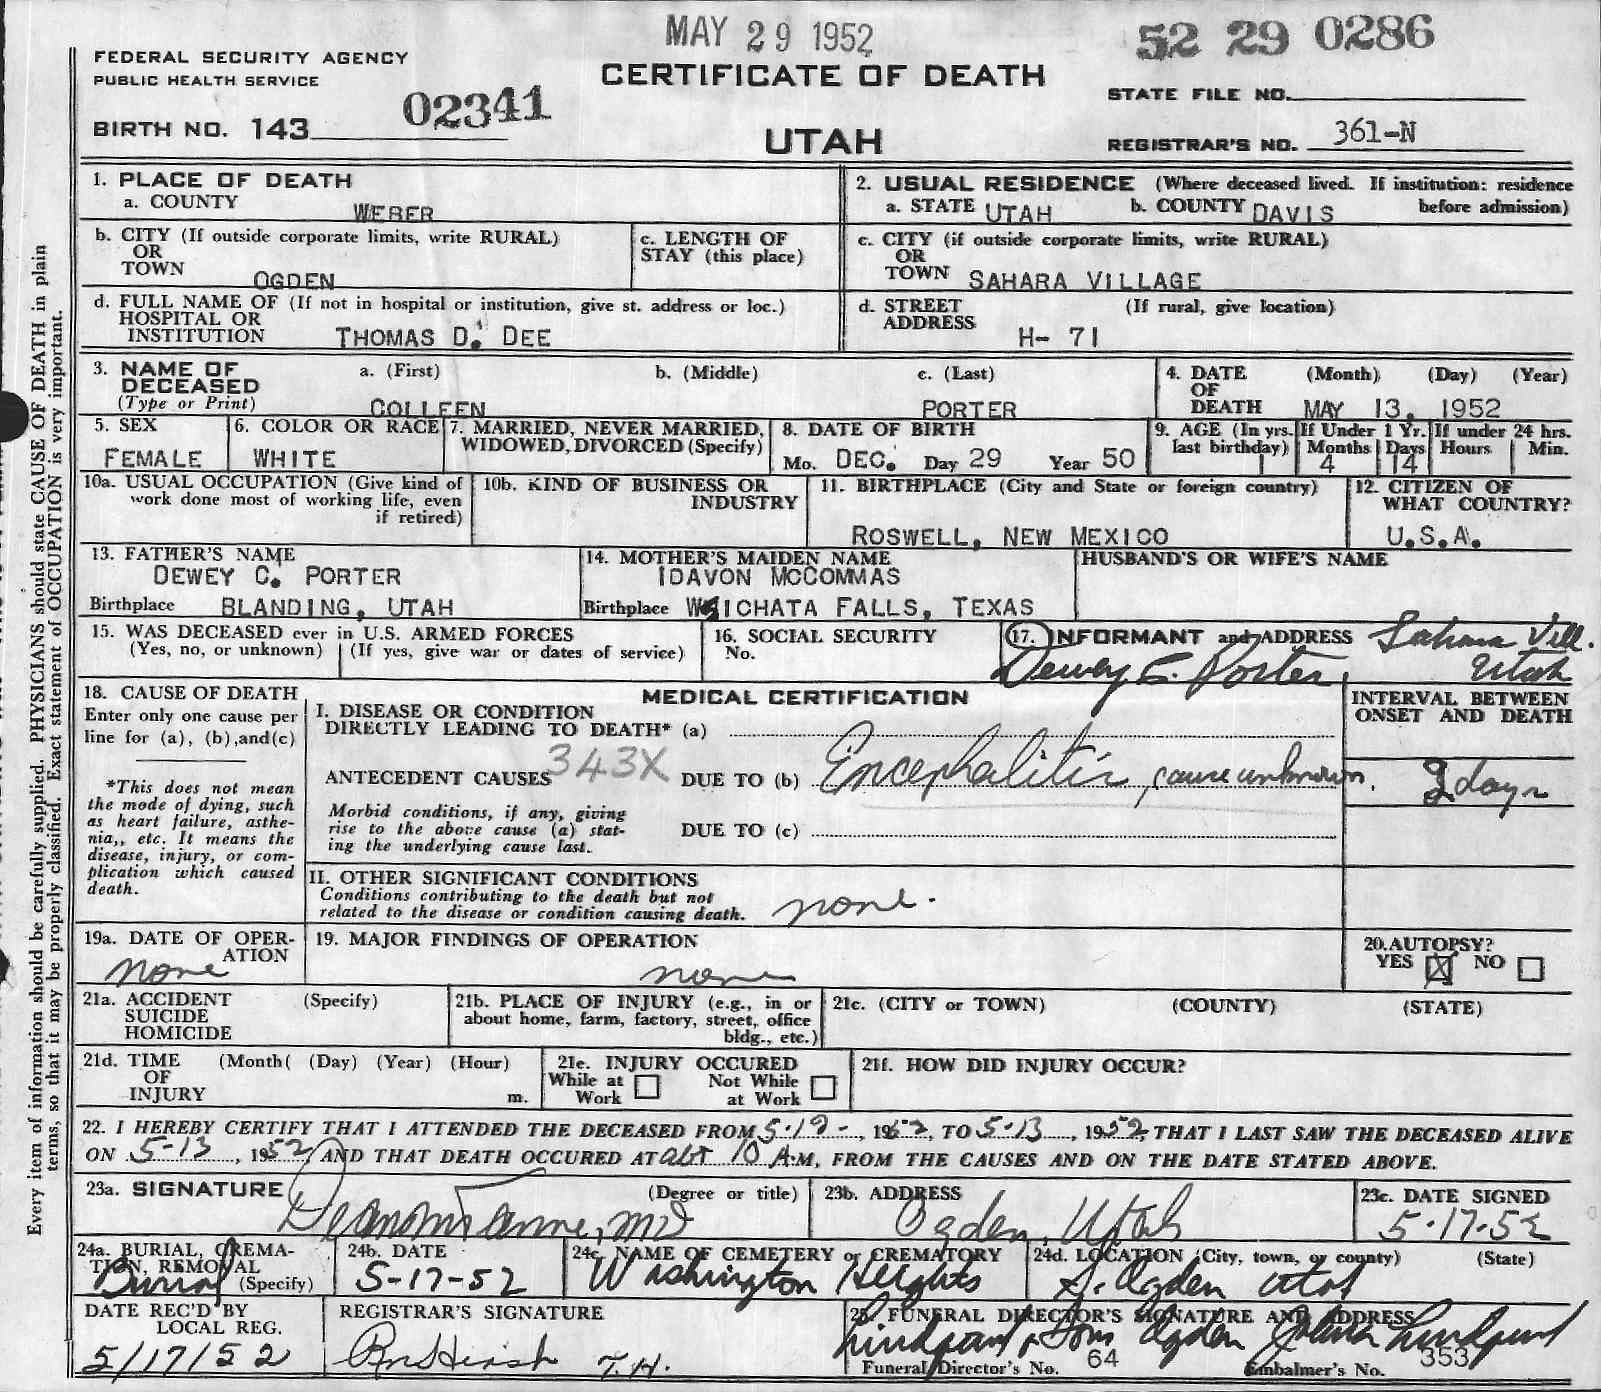 MAY 29 1952
52 29 0286
FEDERAL SECURITY AGENCY
PUBLIC HEALTH SERVICE
CERTIFICATE OF DEATH
STATE FILE NO.
02341
BIRTH NO. 143
UTAH
REGISTRAR'S NO. 361-N
1. PLACE OF DEATH
a. COUNTY WEBER
2. USUAL RESIDENCE (Where deceased lived. If institution: residence before admission)
a. STATE UTAH b. COUNTY DAVIS
b. CITY (If outside corporate limits, write RURAL)
OR
TOWN OGDEN
c. LENGTH OF
STAY (this place)
c. CITY (if outside corporate limits, write RURAL)
OR
TOWN SAHARA VILLAGE
d. FULL NAME OF (If not in hospital or institution, give st. address or loc.)
HOSPITAL OR
INSTITUTION THOMAS D. DEE
d. STREET (If rural, give location)
ADDRESS H- 71
3. NAME OF a. (First) b. (Middle) c. (Last)
DECEASED
(Type or Print) COLLEEN PORTER
4. DATE (Month) (Day) (Year)
OF
DEATH MAY 13, 1952
5. SEX
FEMALE
6. COLOR OR RACE
WHITE
7. MARRIED, NEVER MARRIED,
WIDOWED, DIVORCED (Specify)
8. DATE OF BIRTH
Mo. DEC. Day 29 Year 50
9. AGE (In yrs. last birthday) 1
If Under 1 Yr. Months 4 Days 14
If under 24 hrs. Hours Min.
10a. USUAL OCCUPATION (Give kind of
work done most of working life, even
if retired)
10b. KIND OF BUSINESS OR
INDUSTRY
11. BIRTHPLACE (City and State or foreign country)
ROSWELL, NEW MEXICO
12. CITIZEN OF
WHAT COUNTRY?
U.S.A.
13. FATHER'S NAME
DEWEY C. PORTER
Birthplace BLANDING, UTAH
14. MOTHER'S MAIDEN NAME
IDAVON MCCOMMAS
Birthplace WICHATA FALLS, TEXAS
HUSBAND'S OR WIFE'S NAME
15. WAS DECEASED ever in U.S. ARMED FORCES
(Yes, no, or unknown) (If yes, give war or dates of service)
16. SOCIAL SECURITY
No.
17. INFORMANT and ADDRESS Sahara Vill.
Dewey C. Porter, Utah
18. CAUSE OF DEATH
Enter only one cause per
line for (a), (b),and(c)
*This does not mean
the mode of dying, such
as heart failure, asthe-
nia,, etc. It means the
disease, injury, or com-
plication which caused
death.
MEDICAL CERTIFICATION
INTERVAL BETWEEN
ONSET AND DEATH
I. DISEASE OR CONDITION
DIRECTLY LEADING TO DEATH* (a)
343X
ANTECEDENT CAUSES DUE TO (b) Encephalitis, cause unknown. days
Morbid conditions, if any, giving
rise to the above cause (a) stat-
ing the underlying cause last.
DUE TO (c)
II. OTHER SIGNIFICANT CONDITIONS
Conditions contributing to the death but not
related to the disease or condition causing death. none.
19a. DATE OF OPER-
ATION
none
19. MAJOR FINDINGS OF OPERATION
none
20. AUTOPSY?
YES X NO
21a. ACCIDENT (Specify)
SUICIDE
HOMICIDE
21b. PLACE OF INJURY (e.g., in or
about home, farm, factory, street, office
bldg., etc.)
21c. (CITY or TOWN) (COUNTY) (STATE)
21d. TIME (Month( (Day) (Year) (Hour)
OF
INJURY m.
21e. INJURY OCCURED
While at Work Not While at Work
21f. HOW DID INJURY OCCUR?
22. I HEREBY CERTIFY THAT I ATTENDED THE DECEASED FROM 5-12-, 1952, TO 5-13, 1952, THAT I LAST SAW THE DECEASED ALIVE
ON 5-13, 1952, AND THAT DEATH OCCURED AT abt 10 A.M, FROM THE CAUSES AND ON THE DATE STATED ABOVE.
23a. SIGNATURE (Degree or title)
Tanner, MD
23b. ADDRESS
Ogden, Utah
23c. DATE SIGNED
5-17-52
24a. BURIAL, CREMA-
TION, REMOVAL
Burial (Specify)
24b. DATE
5-17-52
24c. NAME OF CEMETERY or CREMATORY
Washington Heights
24d. LOCATION (City, town, or county) (State)
S. Ogden Utah
DATE REC'D BY
LOCAL REG.
5/17/52
REGISTRAR'S SIGNATURE
T.H.
25. FUNERAL DIRECTOR'S SIGNATURE AND ADDRESS
Lindquist & Sons Ogden Lindquist
Funeral Director's No. 64 Embalmer's No. 353
Every item of information should be carefully supplied. PHYSICIANS should state CAUSE OF DEATH in plain
terms, so that it may be properly classified. Exact statement of OCCUPATION is very important.